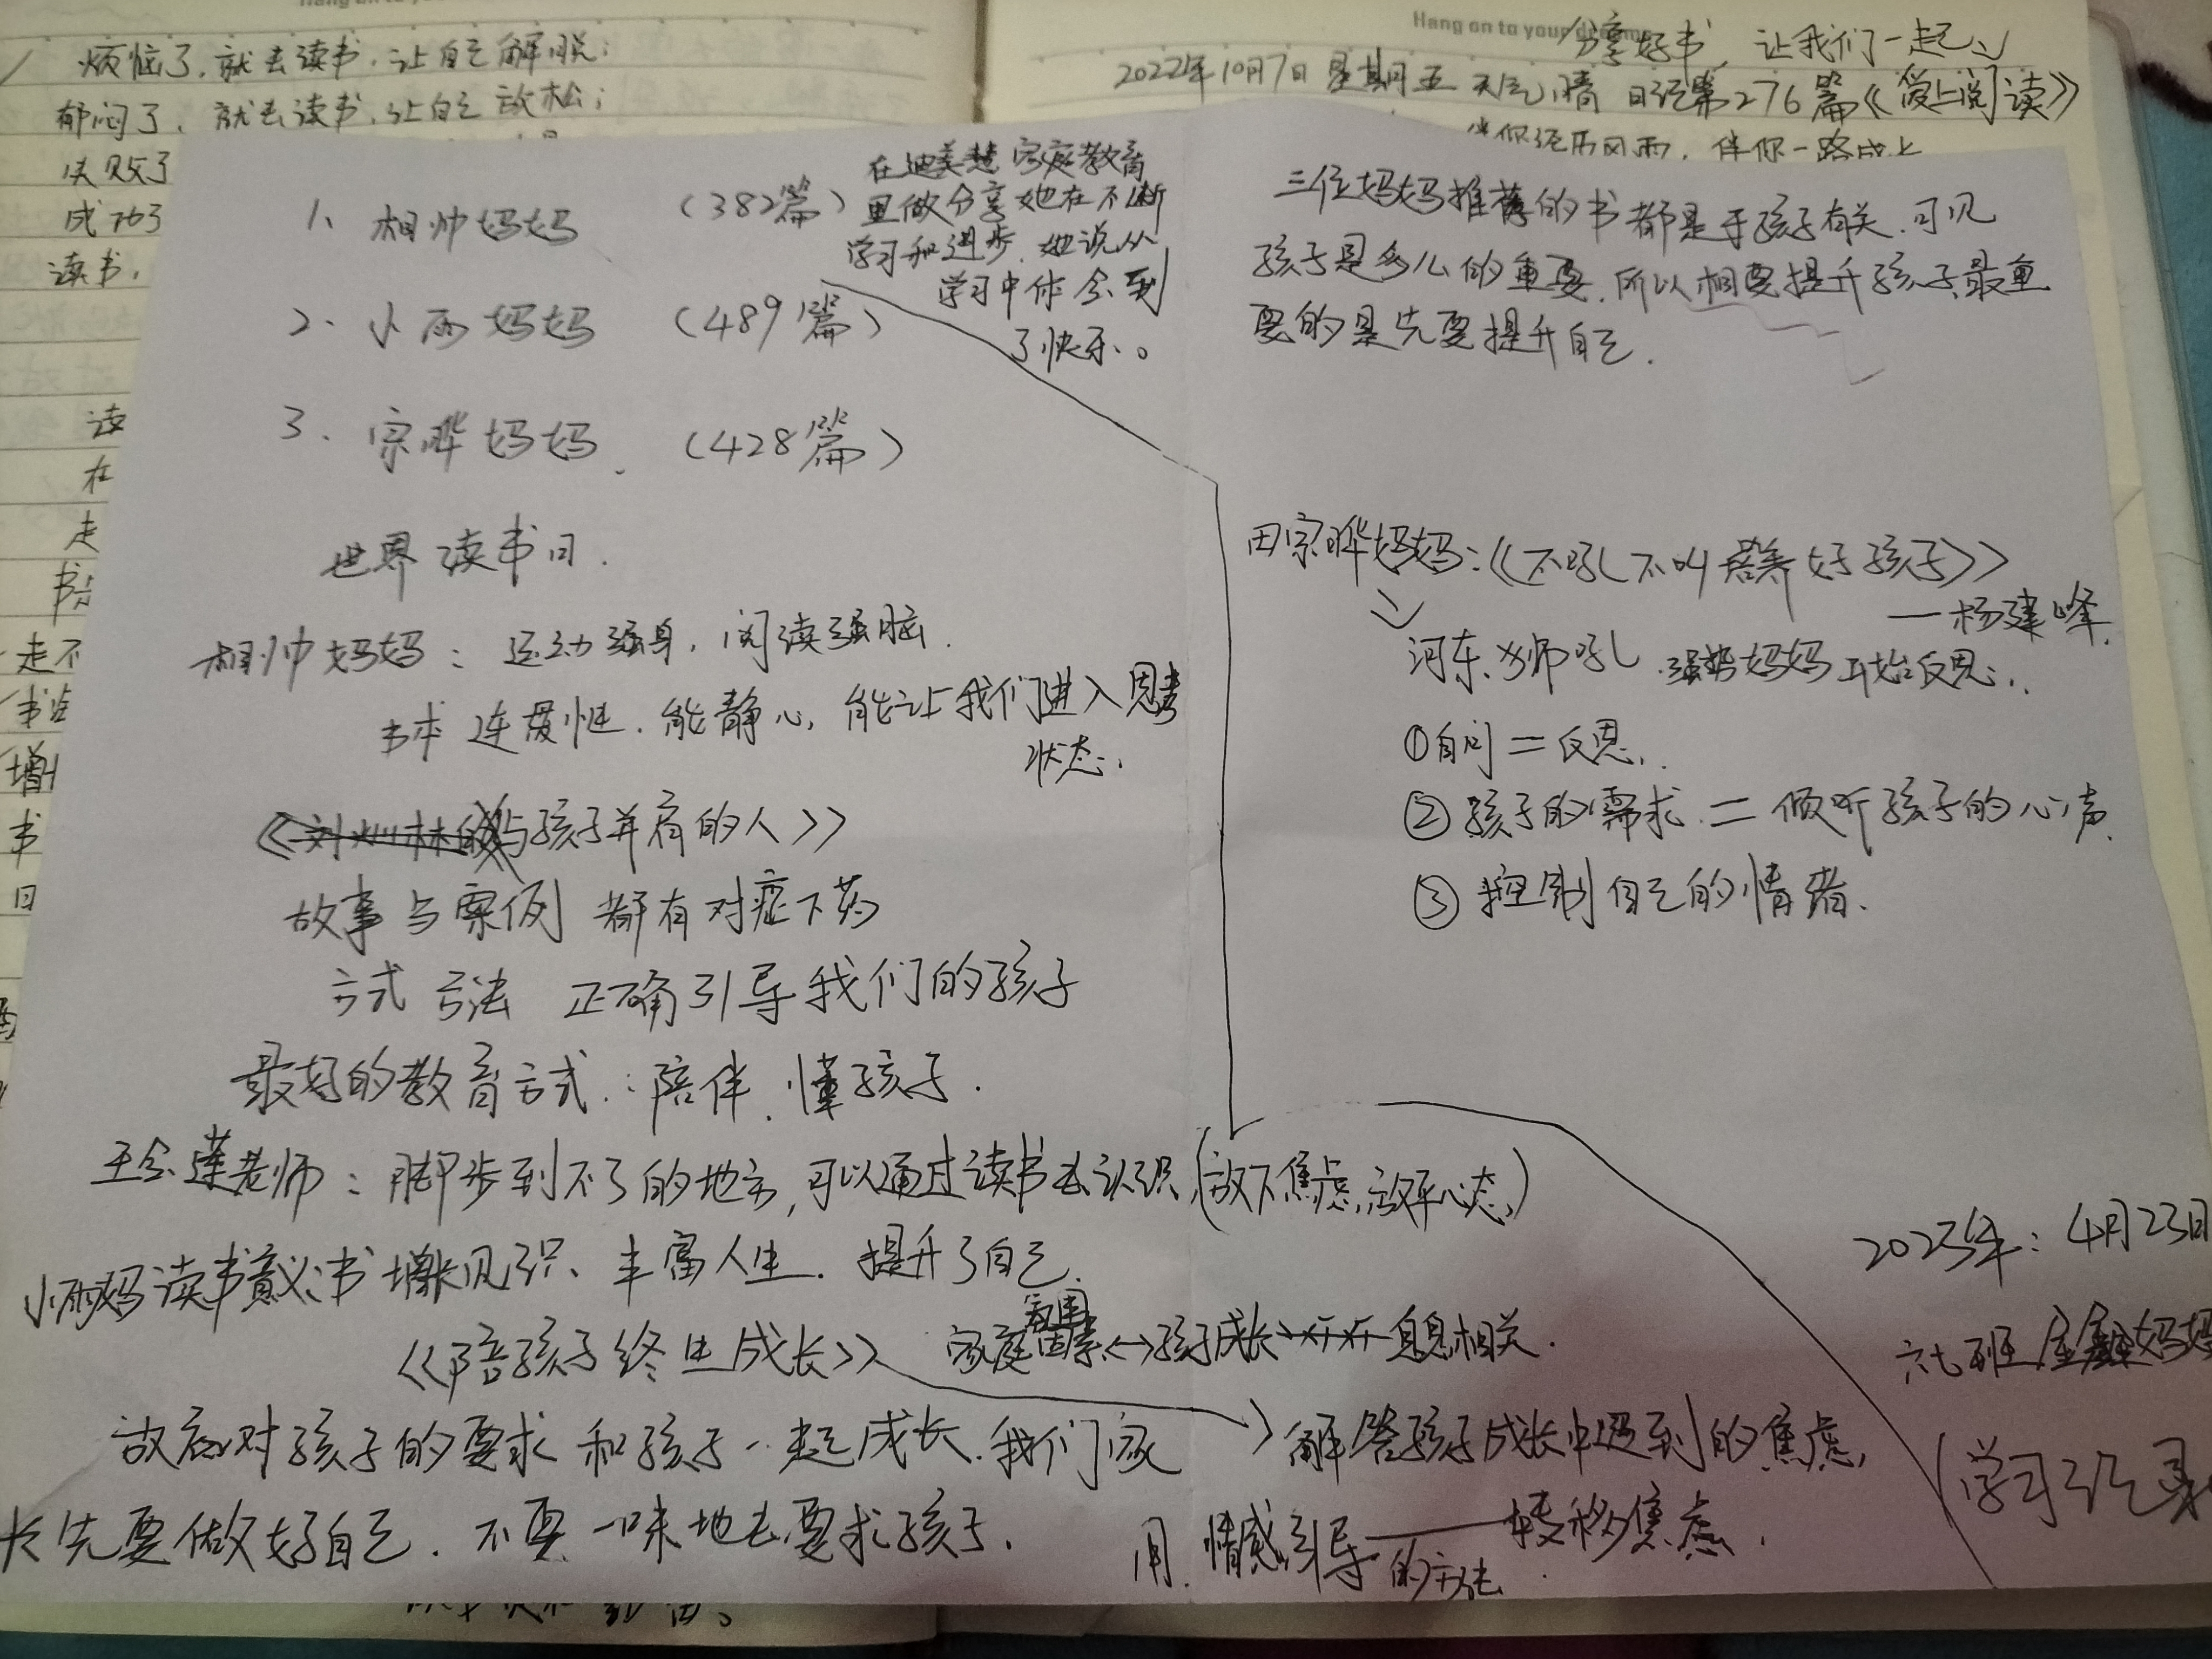 烦恼了,就去读书,让自己解脱;
郁闷了,就去读书,让自己放松;
失败了
成功了
读书,
读
在
走
书
走不
书
增
书
日
Hang on to your dreams
分享好书,让我们一起
2022年10月7日 星期五 天气晴 日记第276篇《爱上阅读》
伴你经历风雨,伴你一路成长
1、相帅妈妈 (382篇)
在迪美慧家庭教育
里做分享她在不断
学习和进步,她说从
学习中体会到
了快乐。
2. 小雨妈妈 (489篇)
3. 宗晔妈妈. (428篇)
世界读书日.
相帅妈妈:运动强身,阅读强脑.
书本 连贯性.能静心,能让我们进入思考
状态.
《与孩子并肩的人》
故事与案例 都有对症下药
方式方法 正确引导我们的孩子
最好的教育方式:陪伴、懂孩子.
王会莲老师:脚步到不了的地方,可以通过读书去认识(放下焦虑,放平心态)
小雨妈读书意义:书增长见识、丰富人生.提升了自己.
《陪孩子终生成长》 家庭氛围因素↔孩子成长 息息相关.
解答孩子成长中遇到的焦虑,
故应对孩子的要求 和孩子一起成长.我们家
长先要做好自己.不要一味地去要求孩子.
用.情感引导的方法——转移焦虑.
三位妈妈推荐的书都是于孩子有关.可见
孩子是多么的重要.所以相要提升孩子最重
要的是先要提升自己.
田宗晔妈妈:《不吼不叫培养好孩子》
—杨建峰.
河东狮吼 强势妈妈开始反思..
①自问=反思..
②孩子的需求=倾听孩子的心声.
③控制自己的情绪.
2023年:4月23日
六七班 妈妈
(学习记录